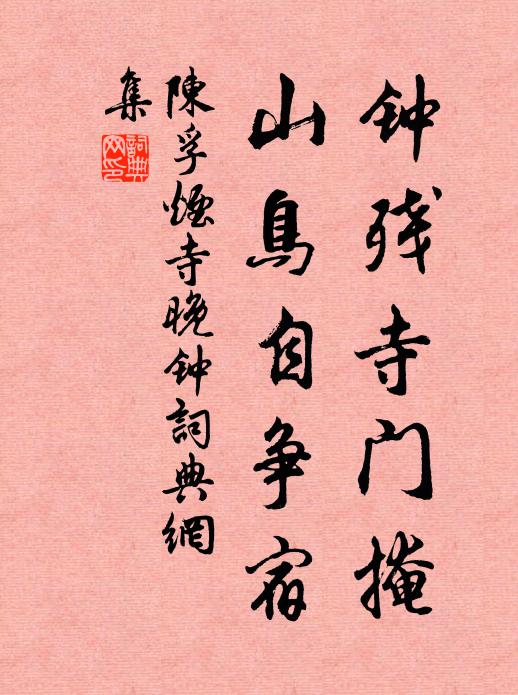 钟残寺门掩
山鳥自争宿
陳孚煙寺晚钟詞典網
集
詞典網印